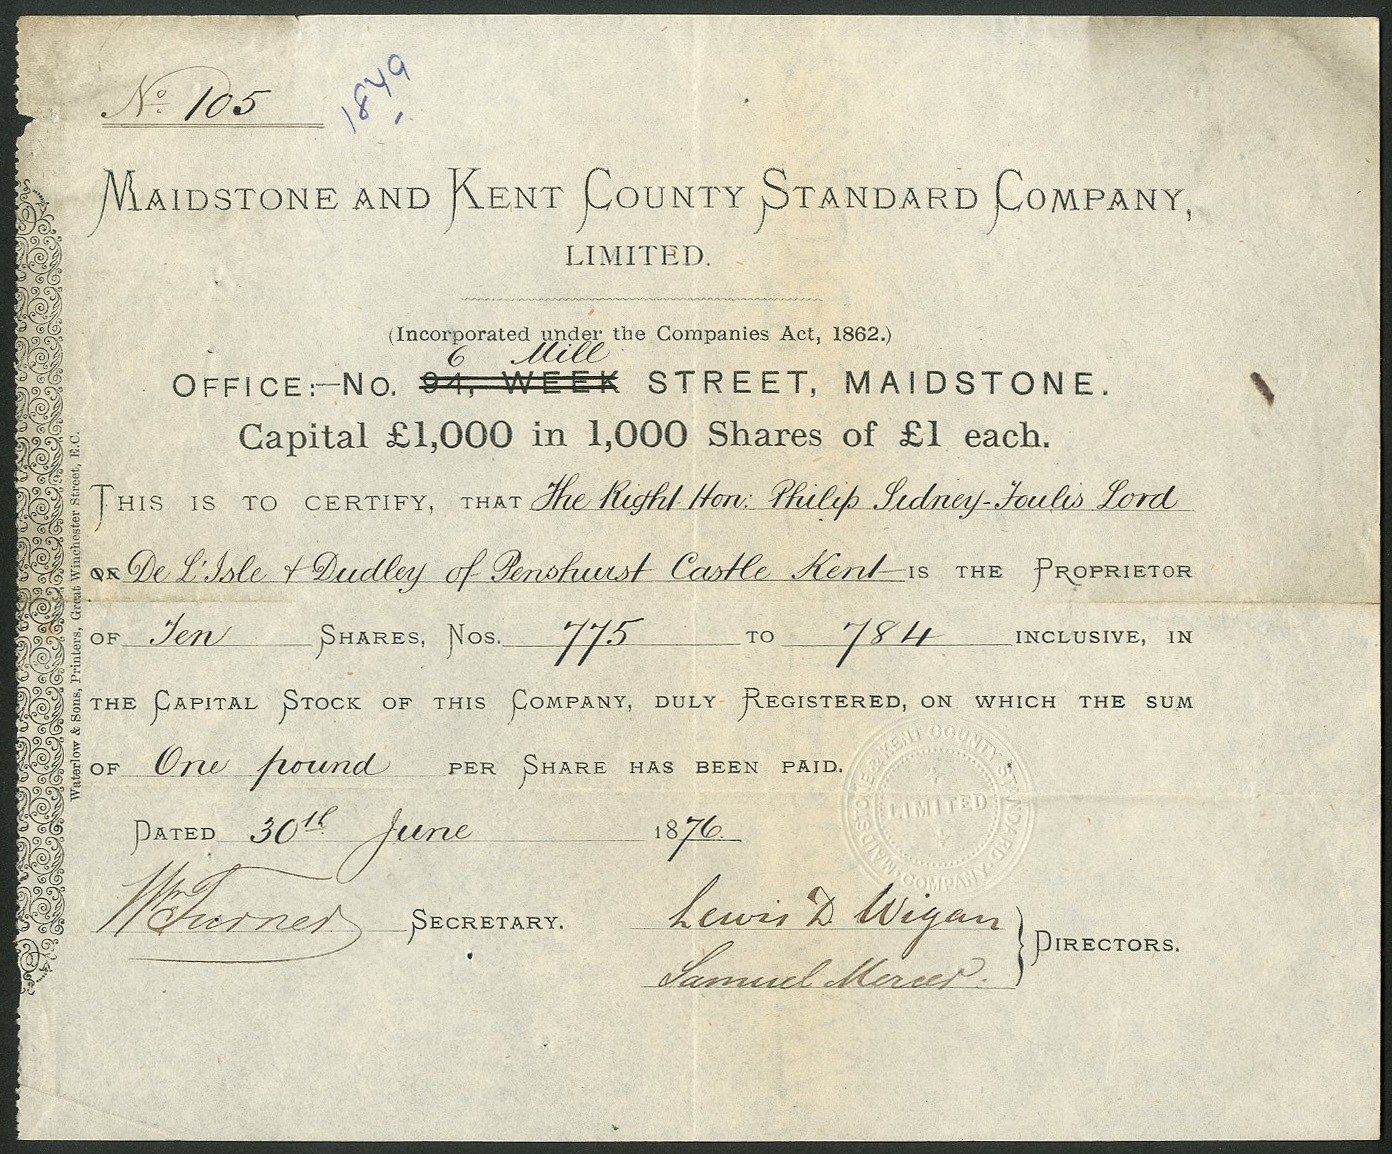 No. 105
1849
MAIDSTONE AND KENT COUNTY STANDARD COMPANY,
LIMITED.
(Incorporated under the Companies Act, 1862.)
6 Mill
OFFICE:—No. 94, WEEK STREET, MAIDSTONE.
Capital £1,000 in 1,000 Shares of £1 each.
THIS IS TO CERTIFY, THAT The Right Hon: Philip Sidney-Foulis Lord
OF De L'Isle & Dudley of Penshurst Castle Kent IS THE PROPRIETOR
OF Ten SHARES, NOS. 775 TO 784 INCLUSIVE, IN
THE CAPITAL STOCK OF THIS COMPANY, DULY REGISTERED, ON WHICH THE SUM
OF One pound PER SHARE HAS BEEN PAID.
DATED 30th June 1876.
Wm Turner SECRETARY.
Lewis D Wigan
Samuel Mercer.
DIRECTORS.
MAIDSTONE & KENT COUNTY STANDARD COMPANY
LIMITED
Waterlow & Sons, Printers, Great Winchester Street, E.C.